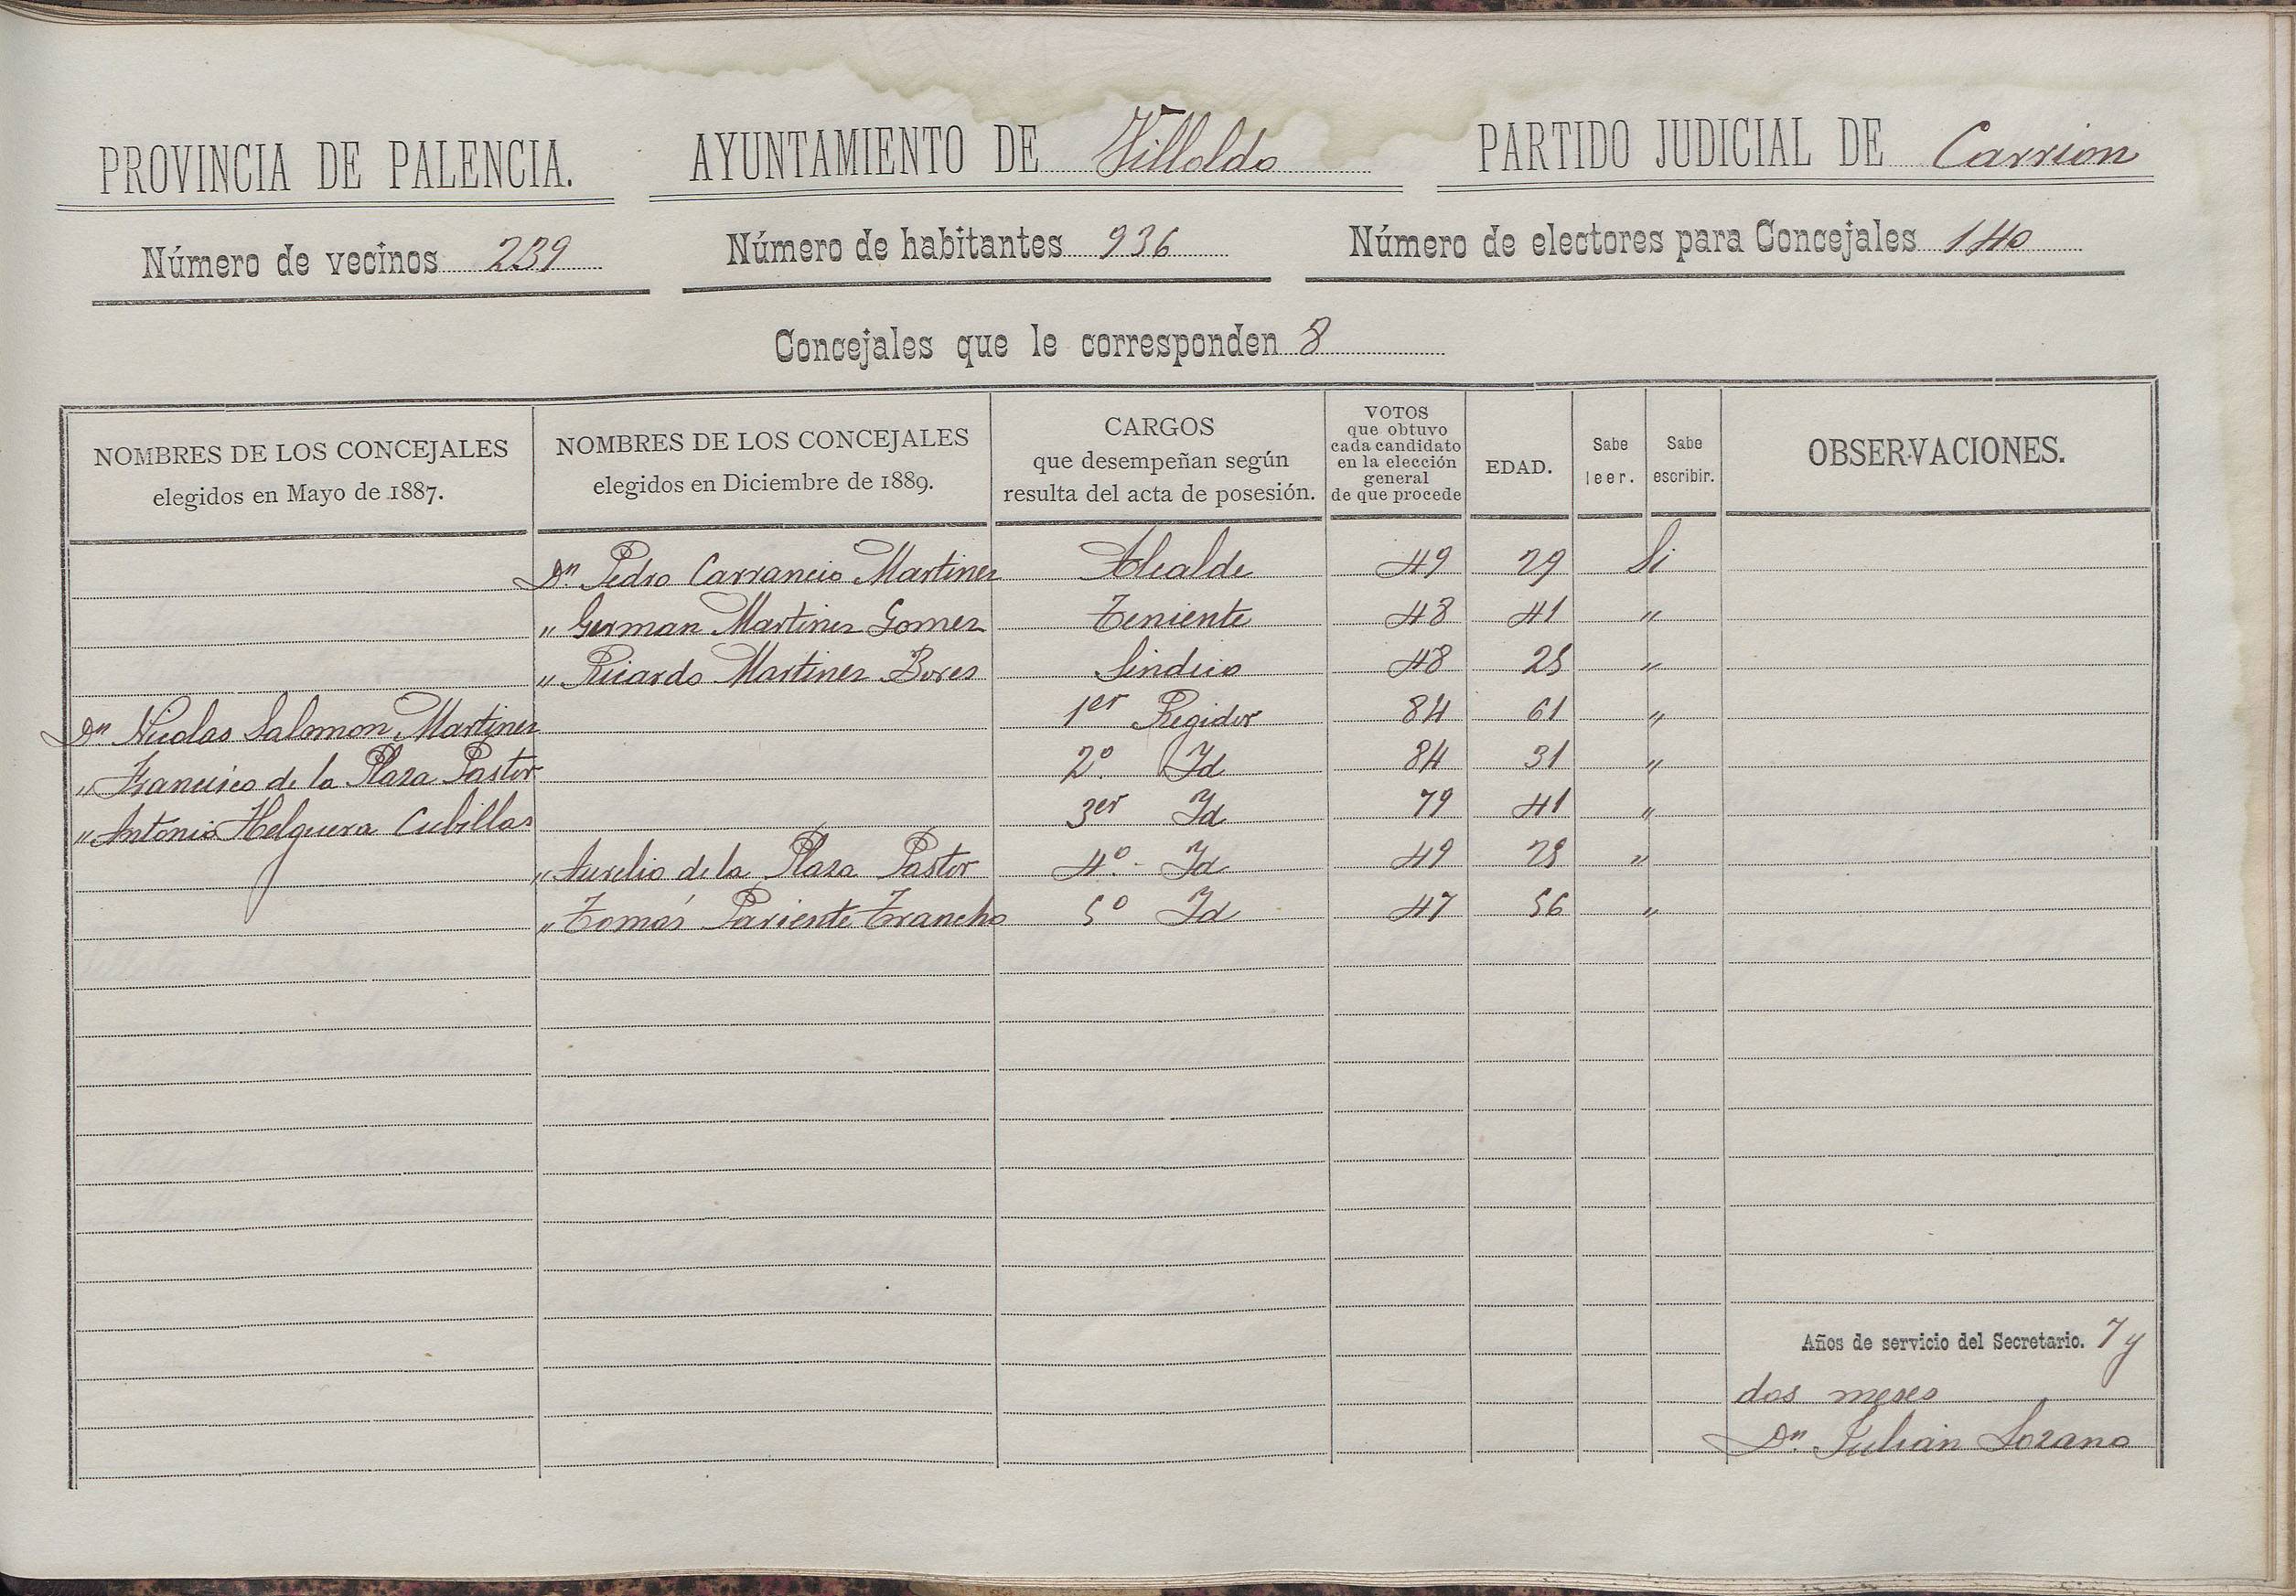 PROVINCIA DE PALENCIA. AYUNTAMIENTO DE Villoldo PARTIDO JUDICIAL DE Carrion
Número de vecinos 239 Número de habitantes 936 Número de electores para Concejales 140
Concejales que le corresponden 8
NOMBRES DE LOS CONCEJALES
elegidos en Mayo de 1887.
NOMBRES DE LOS CONCEJALES
elegidos en Diciembre de 1889.
CARGOS
que desempeñan según
resulta del acta de posesión.
VOTOS
que obtuvo
cada candidato
en la elección
general
de que procede
EDAD.
Sabe
leer.
Sabe
escribir.
OBSERVACIONES.
Dn Pedro Carrancio Martinez Alcalde 49 29 Si
" German Martinez Gomez Teniente 48 41 "
" Ricardo Martinez Bores Sindico 48 25 "
Dn Nicolas Salomon Martinez 1er Regidor 84 61 "
" Francisco de la Plaza Pastor 2º. Id 84 31 "
" Antonio Helguera Cubillas 3er Id 79 41 "
" Aurelio de la Plaza Pastor 4º. Id 49 28 "
" Tomás Pariente Trancho 5º Id 47 56 "
Años de servicio del Secretario. 7 y
dos meses
Dn. Julián Lozano